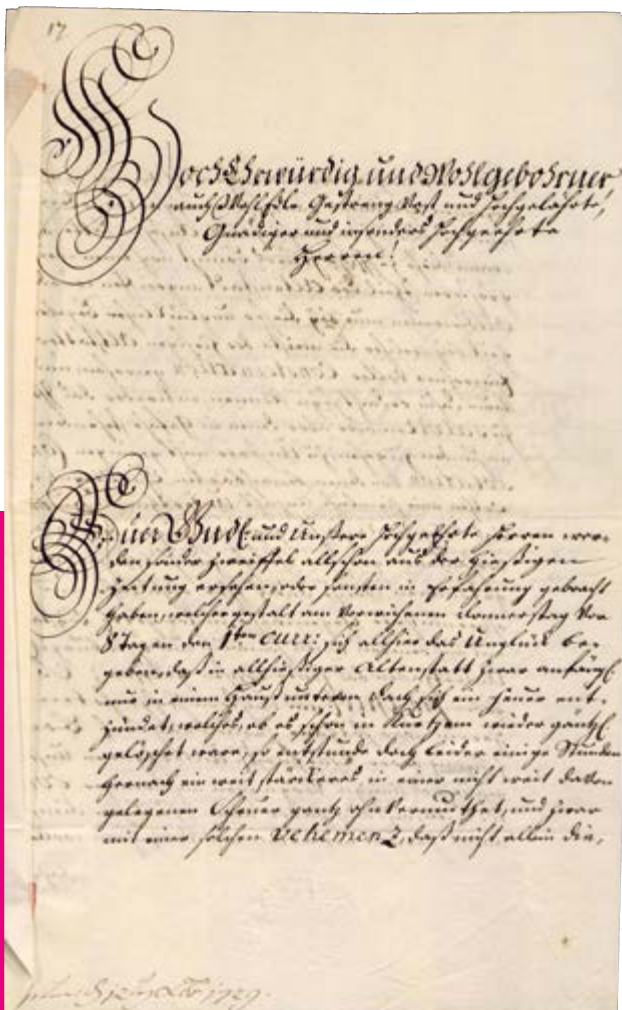 17
Hoch Ehrwürdig und Wohlgebohrner,
auch WohlEdle Gestreng Vest und Hochgelahrte,
Gnädiger und insonders Hochgeehrte
Herren!
Euer und Unßere Hochgeehrte Herren wer-
den sonder Zweiffel allschon aus der hießigen
Zeitung ersehen, oder sonsten in Erfahrung gebracht
haben, welcher gestalt am verwichenen Donnerstag vor
8 Tagen den 1ten curr: sich allhier das Unglück be-
geben, daß in allhießiger Altenstatt zwar anfängl.
nur in einem Hauß unterm Dach sich ein Feuer ent-
zündet, welches, ob es schon in Kurtzem wieder gäntzl.
gelöschet ware, so entstunde doch leider einige Stunden
hernach ein weit stärckeres in einer nicht weit davon
gelegenen Scheuer gantz ohnvermuthet, und zwar
mit einer solchen Vehemenz, daß nicht allein die,
1729.